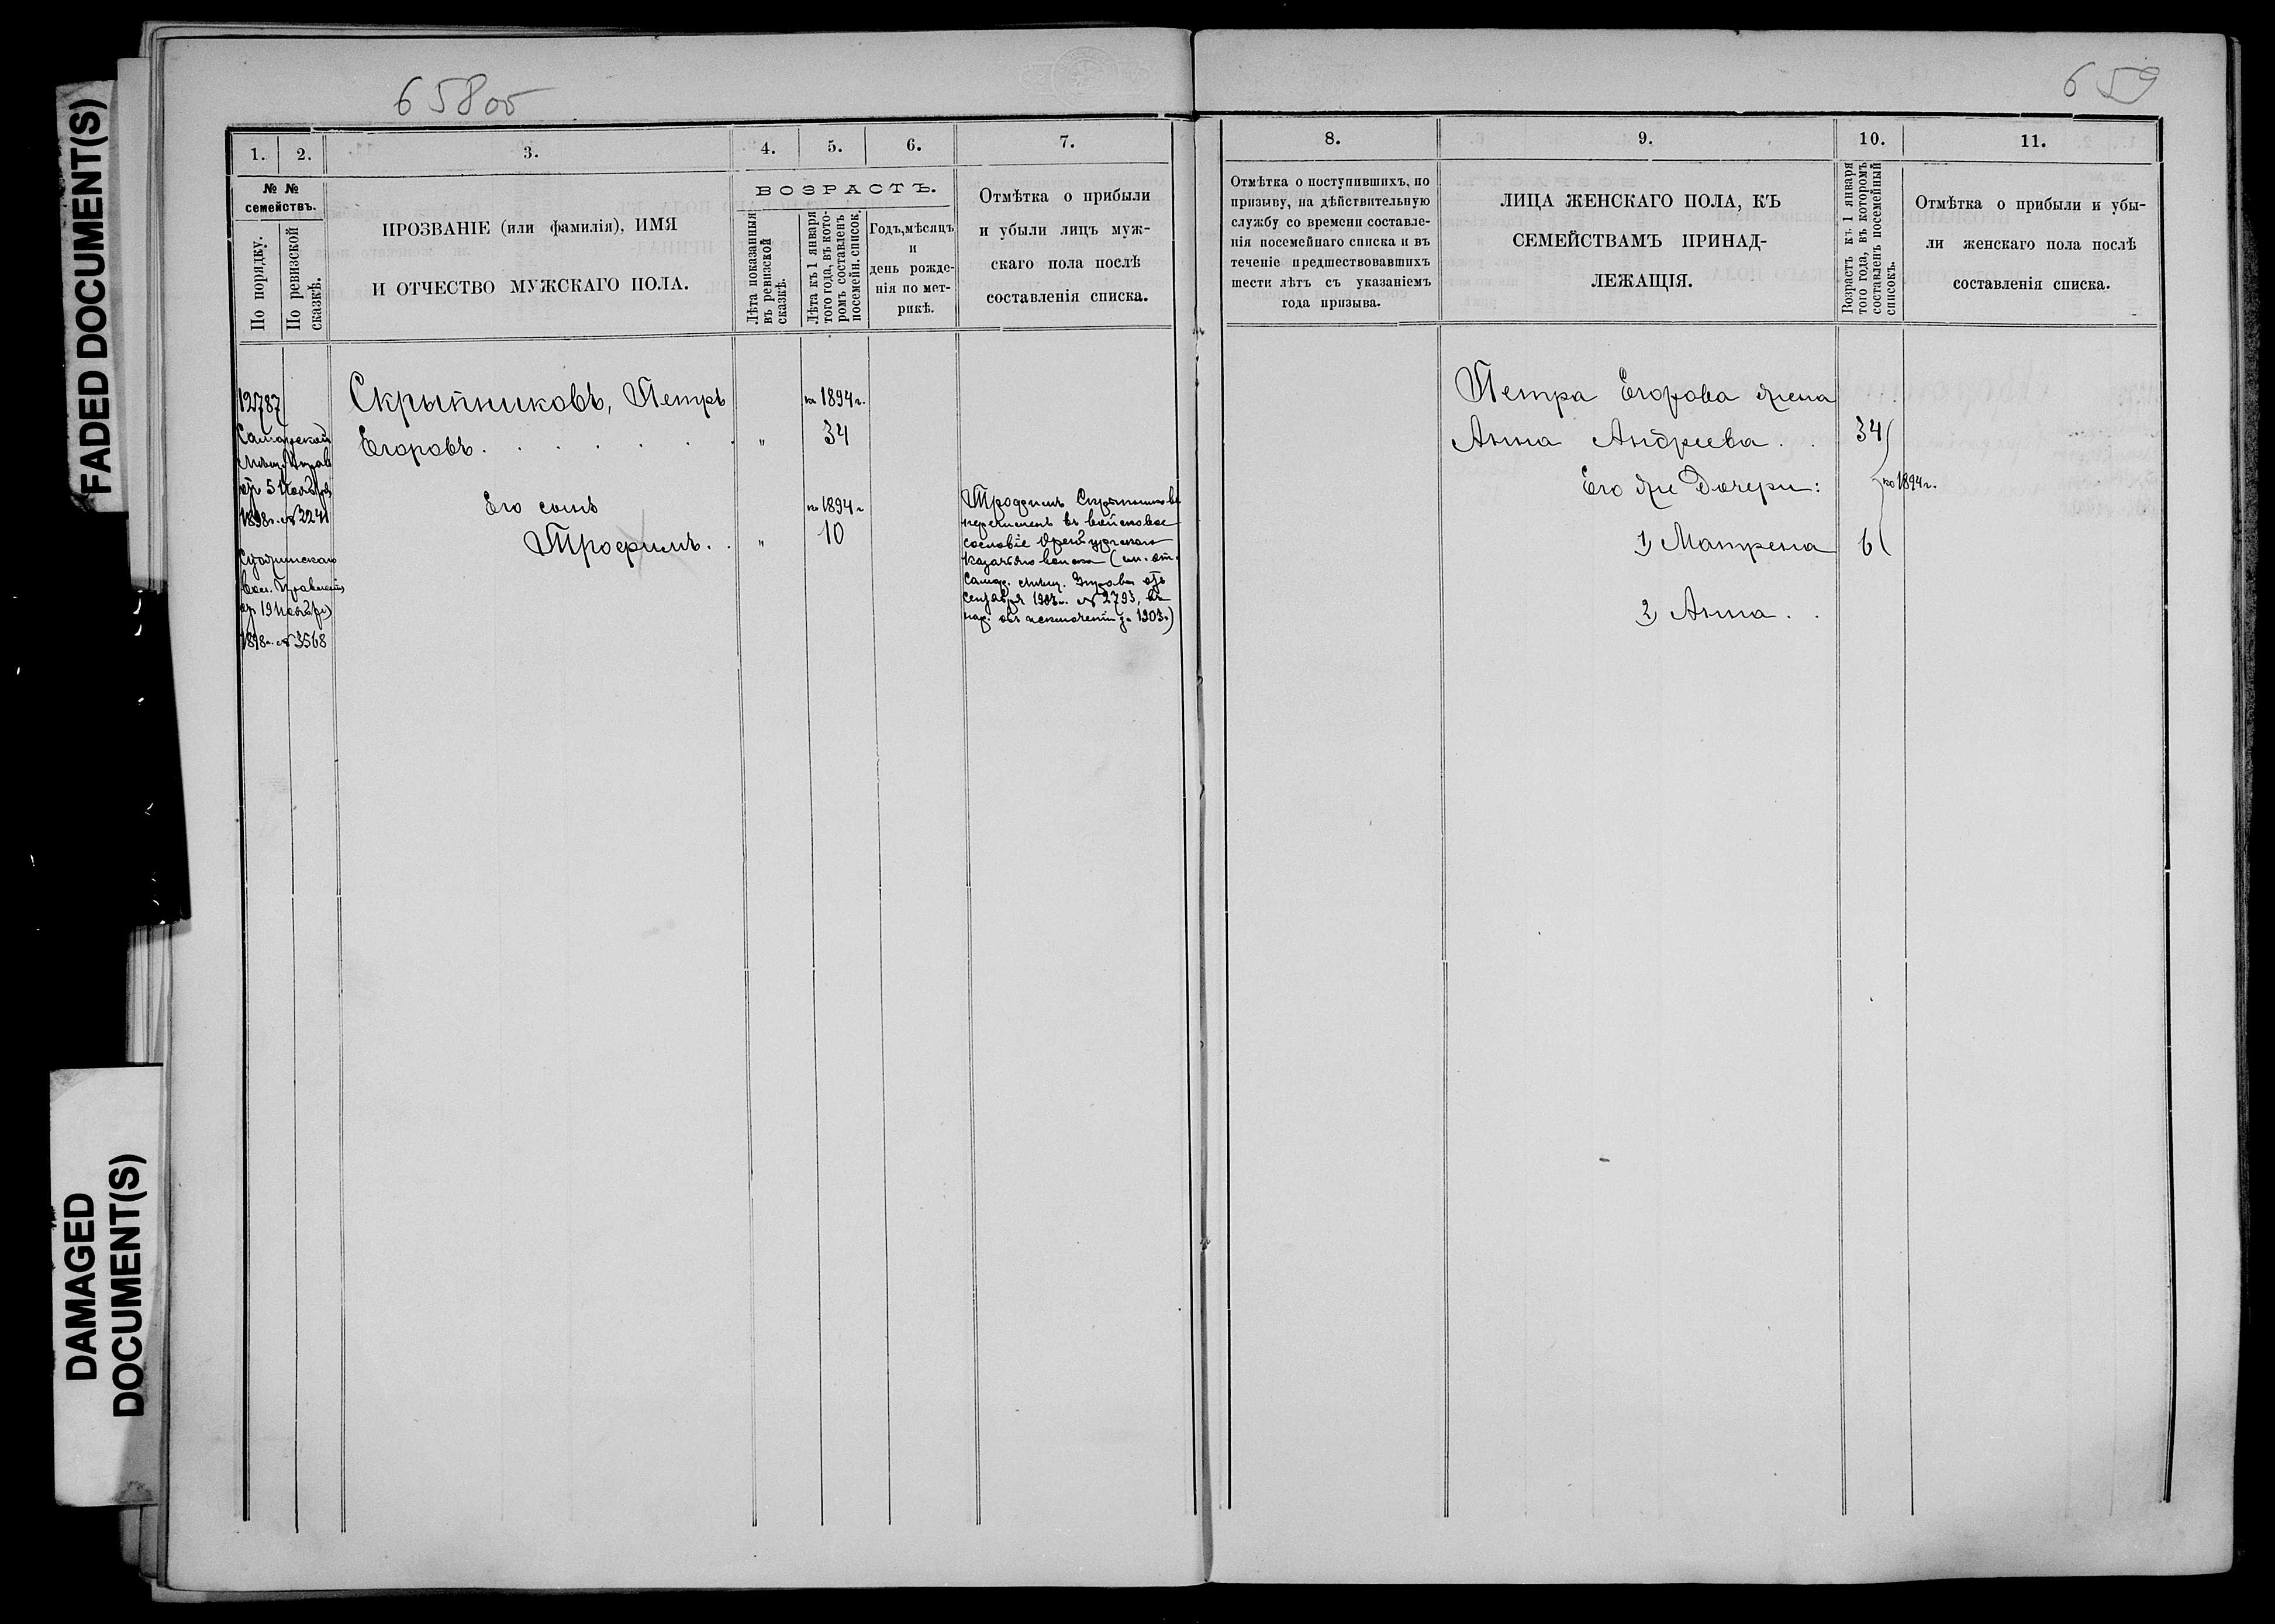 FADED DOCUMENT(S)
DAMAGED
DOCUMENT(S)
658об
1.
2.
3.
4.
5.
6.
7.
№ №
семействъ.
По порядку.
По ревизской
сказкѣ.
ПРОЗВАНІЕ (или фамилія), ИМЯ
И ОТЧЕСТВО МУЖСКАГО ПОЛА.
ВОЗРАСТЪ.
Лѣта показанныя
въ ревизской
сказкѣ.
Лѣта къ 1 января
того года, въ кото-
ромъ составленъ
посемейн. списокъ.
Годъ, мѣсяцъ
и
день рожде-
нія по мет-
рикѣ.
Отмѣтка о прибыли
и убыли лицъ муж-
скаго пола послѣ
составленія списка.
12787
Самарской
Мѣщ. Управ
от 5 Ноября
1898г. № 2241
вол. Правленія
от 19 Ноября
1898г. № 3568
Скрыпниковъ, Петръ
Егоровъ. . . . . . .
Его сынъ
Трофимъ. .
"
"
на 1894г.
34
на 1894г
10
Трофимъ Скрыпниковъ
перечисленъ въ войсковое
сословіе Оренбургскаго
Казачьяго войска (см. от.
Самар. Мѣщ. Управы отъ
Сентября 1903г. № 2793, въ
нар. объ исключеніи за 1903г)
659
8.
9.
10.
11.
Отмѣтка о поступившихъ, по
призыву, на дѣйствительную
службу со времени составле-
нія посемейнаго списка и въ
теченіе предшествовавшихъ
шести лѣтъ съ указаніемъ
года призыва.
ЛИЦА ЖЕНСКАГО ПОЛА, КЪ
СЕМЕЙСТВАМЪ ПРИНАД-
ЛЕЖАЩІЯ.
Возрастъ къ 1 января
того года, въ которомъ
составленъ посемейный
списокъ.
Отмѣтка о прибыли и убы-
ли женскаго пола послѣ
составленія списка.
Петра Егорова жена
Анна Андреева . .
34
Его же дочери:
на 1894г.
1) Матрена
6
2) Анна . .